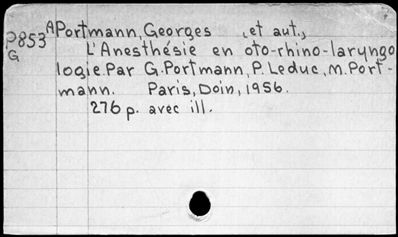 A Portmann, Georges , et aut.,
P853
G
L'Anesthésie en oto-rhino-laryngo
logie. Par G. Portmann, P. Leduc, M. Port-
mann. Paris, Doin, 1956.
276 p. avec ill.